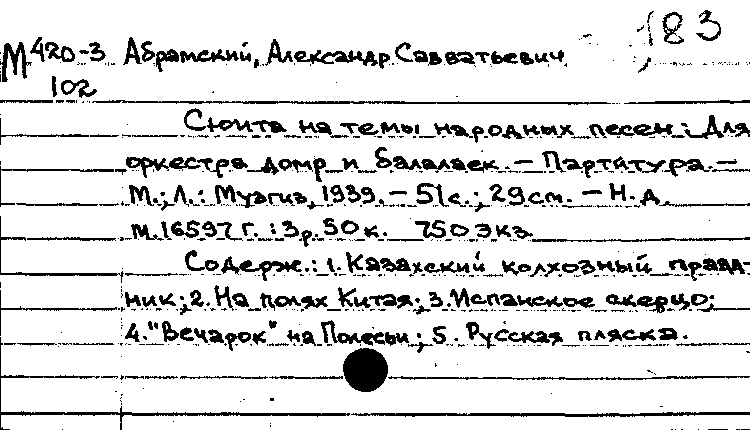 183
М 420-3 Абрамский, Александр Савватьевич
102
Сюита на темы народных песен: Для
оркестра домр и балалаек. — Партитура. —
М.; Л.: Музгиз, 1939. — 51с.; 29см. — Н.д.
м.16597г.: 3р.50к. 750экз
Содерж.: 1. Казахский колхозный празд-
ник; 2. На полях Китая; 3. Испанское скерцо;
4. "Вечарок" на Полесьи; 5. Русская пляска.